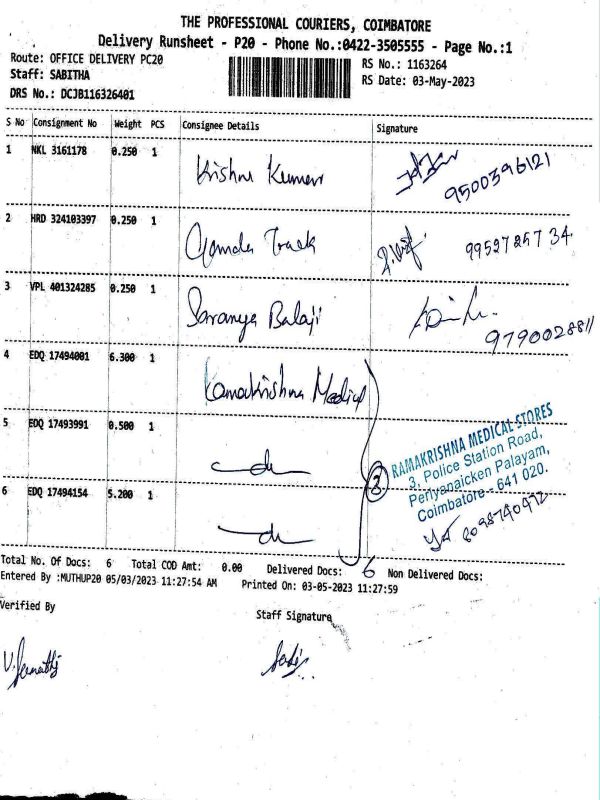 THE PROFESSIONAL COURIERS, COIMBATORE
Delivery Runsheet - P20 - Phone No.:0422-3505555 - Page No.:1
Route: OFFICE DELIVERY PC20
RS No.: 1163264
Staff: SABITHA
RS Date: 03-May-2023
DRS No.: DCJB116326401
S No Consignment No Weight PCS Consignee Details Signature
1 NKL 3161178 0.250 1 Krishna Kumar 9500396121
2 HRD 324103397 0.250 1 Track 9952725734
3 VPL 401324285 0.250 1 Saranya Balaji 9790028811
4 EDQ 17494001 6.300 1 Ramakrishna Medical
5 EDQ 17493991 0.500 1 do
6 EDQ 17494154 5.200 1 do
3
RAMAKRISHNA MEDICAL STORES
3, Police Station Road,
Periyanaicken Palayam,
Coimbatore - 641 020.
8098740972
Total No. Of Docs: 6 Total COD Amt: 0.00 Delivered Docs: 6 Non Delivered Docs:
Entered By :MUTHUP20 05/03/2023 11:27:54 AM Printed On: 03-05-2023 11:27:59
Verified By
Staff Signature